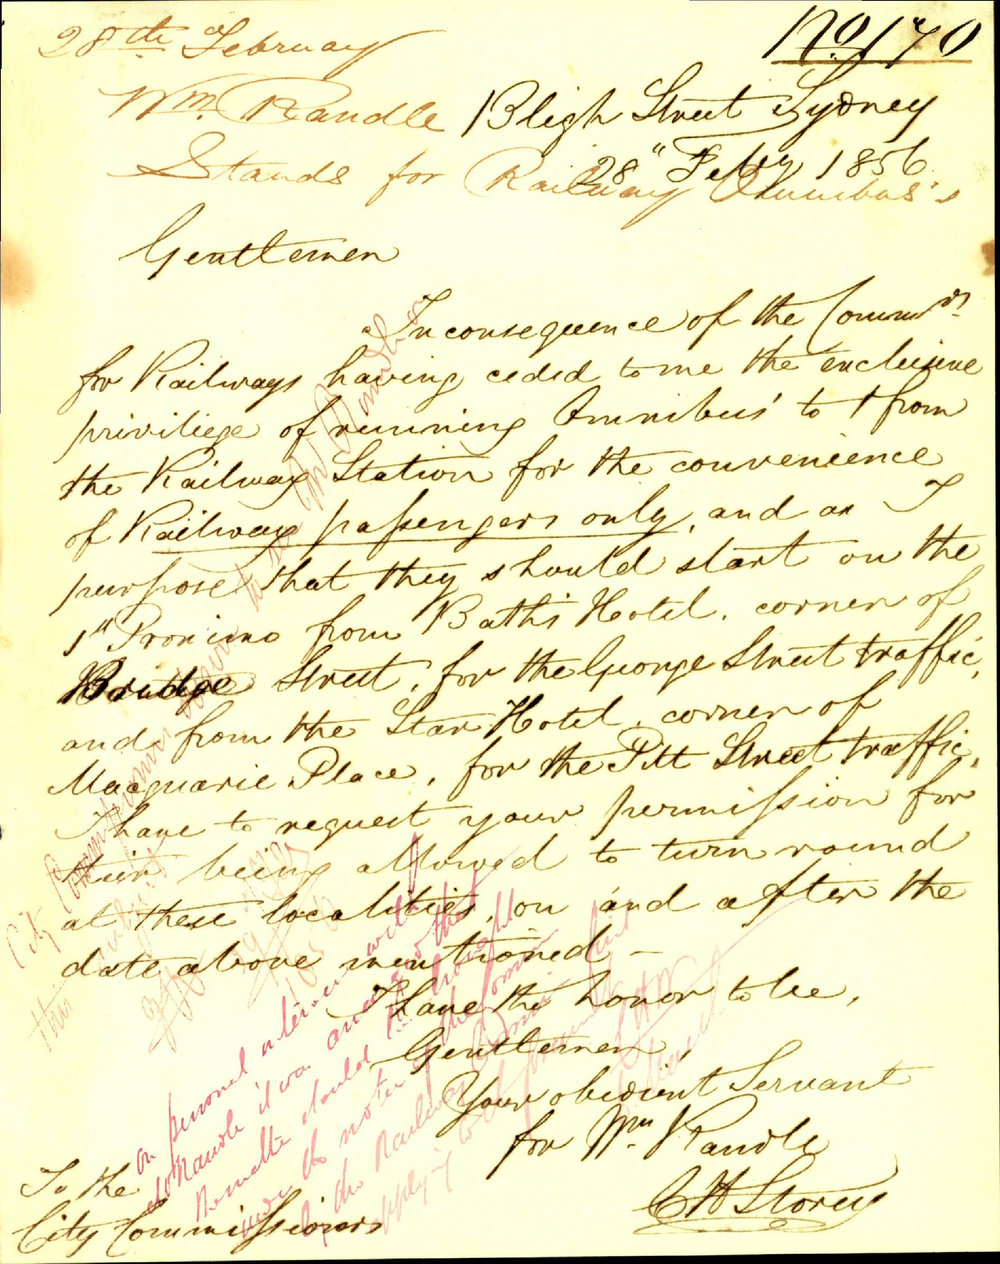 No 170
28th February
Wm. Randle
Stands for Railway Omnibus's
Bligh Street Sydney
28" Feby 1856
Gentlemen
In consequence of the Commrs.
for Railways having ceded to me the exclusive
priviliege of running Omnibus' to & from
the Railway Station for the convenience
of Railway passengers only, and as I
purpose that they should start on the
1st Proximo from Bath's Hotel, corner of
Bridge Street, for the George Street traffic,
and from the Star Hotel, corner of
Macquarie Place, for the Pitt Street traffic,
I have to request your permission for
their being allowed to turn round
at these localities, on and after the
date above mentioned —
I have the honor to be,
Gentlemen,
Your obedient Servant
for Wm Randle
C H Storey
To the
City Commissioners
On personal interview with
Mr Randle it was
should
under the notice of the Commrs
of the Railway
applying to